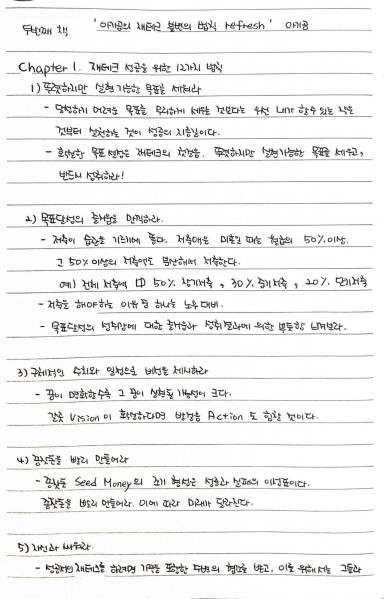 두번째 책 '이기공의 재테크 불변의 법칙 refresh' 이기공
Chapter 1. 재테크 성공을 위한 12가지 법칙
1) 뚜렷하지만 실현가능한 목표를 세워라
- 달성하기 어려운 목표를 무리하게 세우는 것보다는 우선 내가 할수 있는 작은
것부터 실천하는 것이 성공의 지름길이다.
- 확실한 목표설정은 재테크의 첫걸음. 뚜렷하지만 실현가능한 목표를 세우고,
반드시 성취하라!
2) 목표달성의 즐거움을 만끽하라.
- 저축이 습관을 기르기에 좋다. 저축액은 미혼일 때는 월급의 50% 이상.
그 50% 이상의 저축액도 분산해서 저축한다.
예) 전체 저축액 中 50% 장기저축, 30% 중기저축, 20% 단기저축
- 저축도 해야하는 이유 중 하나는 노후대비.
- 목표달성의 성취감에 대한 즐거움과 성취결과에 의한 뿌듯함 느껴보라.
3) 구체적인 수치와 일정으로 비전을 제시하라
- 꿈이 명확할수록 그 꿈이 실현될 가능성이 크다.
곧 Vision이 확실하다면 방법을 Action도 쉬울 것이다.
4) 종잣돈을 빨리 만들어라
- 종잣돈 Seed Money의 조기 형성은 성공과 실패의 이정표이다.
종잣돈을 빨리 만들어라. 이에 따라 미래가 달라진다.
5) 자신과 싸워라
- 성공적인 재테크를 하려면 가족을 포함한 주변의 협조를 받고, 이를 위해서는 그들과